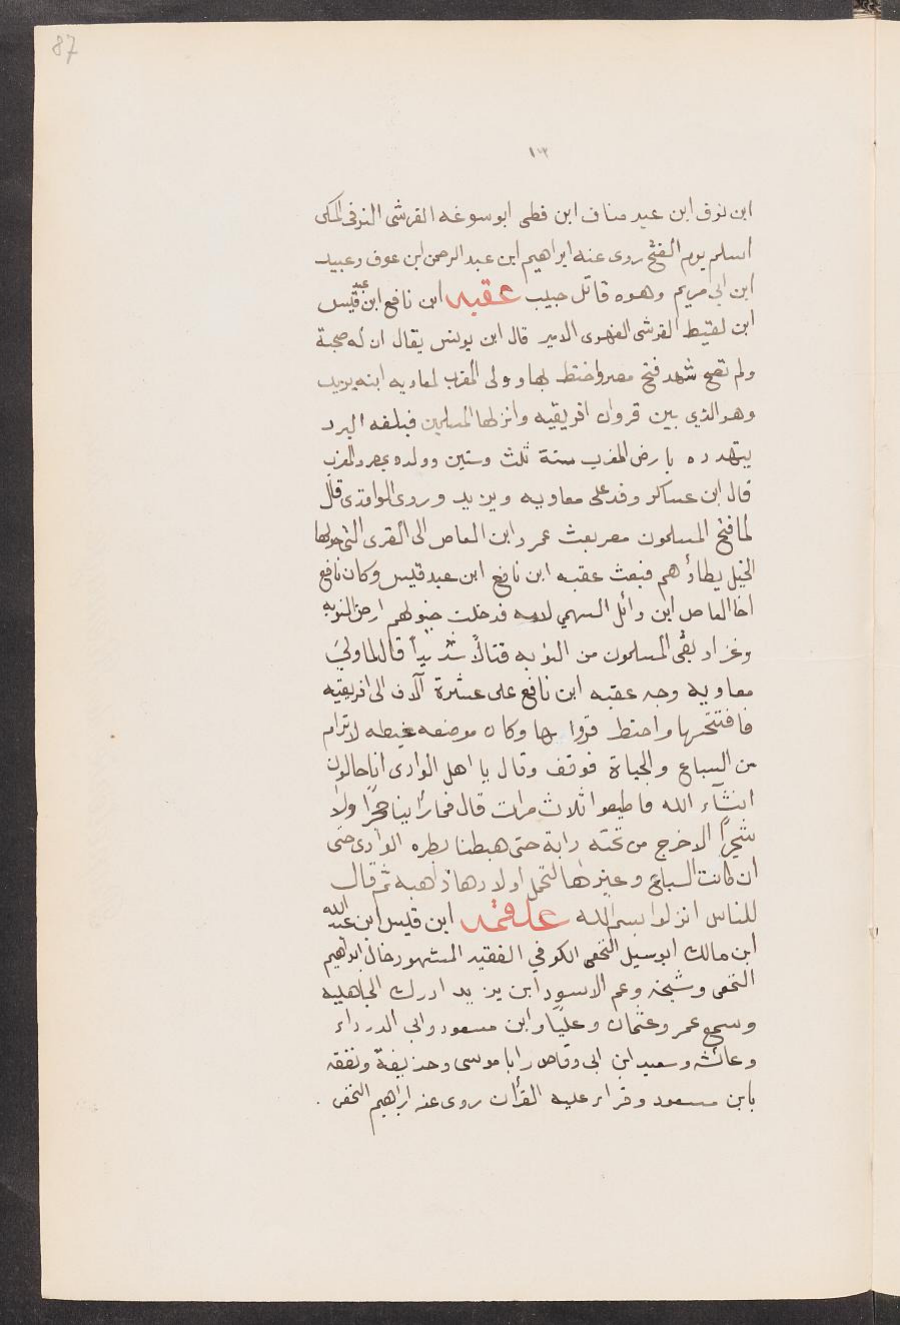 87
١٠٢
ابن نوف ابن عبد مناف ابن قطى ابو سوغه القرشى النوفى المكى
اسلم يوم الفتح روى عنه ابراهيم ابن عبد الرحمن ابن عوف وعبيد
ابن ابى مريم وهوه قاتل حبيب عقبه ابن نافع ابن عبد قيس
ابن لقيط القرشى الفهوى الامير قال ابن يونس يقال ان له صحبة
ولم تصح شهد فتح مصر واختط بها وولى المغرب لمعاويه ابنه يزيد
وهو الذي بين قروان افريقيه وانزلها المسلمين فبلغه البرد
يتهدده بارض المغرب سنة ثلث وستين وولده بمصر والمغرب
قال ابن عساكر وفد على معاويه ويزيد وروى الواقدى قال
لما فتح المسلمون مصر بعث عمر وابن العاص الى القرى التى حولها
الخيل يطاؤهم فبعث عقبه ابن نافع ابن عبد قيس وكان نافع
اخا العاص ابن وائل السهمي لامه فدخلت خيولهم ارض النوبه
وغزاد بقى المسلمون من النوبه قتالاً شديداً قال لما ولى
معاويه وجه عقبه ابن نافع على عشرة آلاف الى افريقيه
فافتتحها واختط قروا بها وكان موضعه غيطه لا ترام
من السباع والحياة فوقف وقال يا اهل الوادى انا حالون
انشآء الله فاطيعوا ثلاث مرات قال فما رأينا حجرًا ولا
شجرًا الا خرج من تحته دابة حتى هبطنا بطره الوادى حتى
ان كانت السباع وغيرها لتحمل اولادها ذاهبه ثم قال
للناس انزلوا بسم الله علقمه ابن قيس ابن عبد الله
ابن مالك ابو سيل النخعى الكوفي الفقيد المشهور خال ابراهيم
النخعى وشيخه وعم الاسود ابن يزيد ادرك الجاهليه
وسمع عمر وعثمان وعليًا وابن مسعود وابى الدرداء
وعائشه وسعيد ابن ابى وقاص رابا موسى وحذيفة وتفقه
بابن مسعود وقراء عليه القرأن روى عنه ابراهيم النخعى .